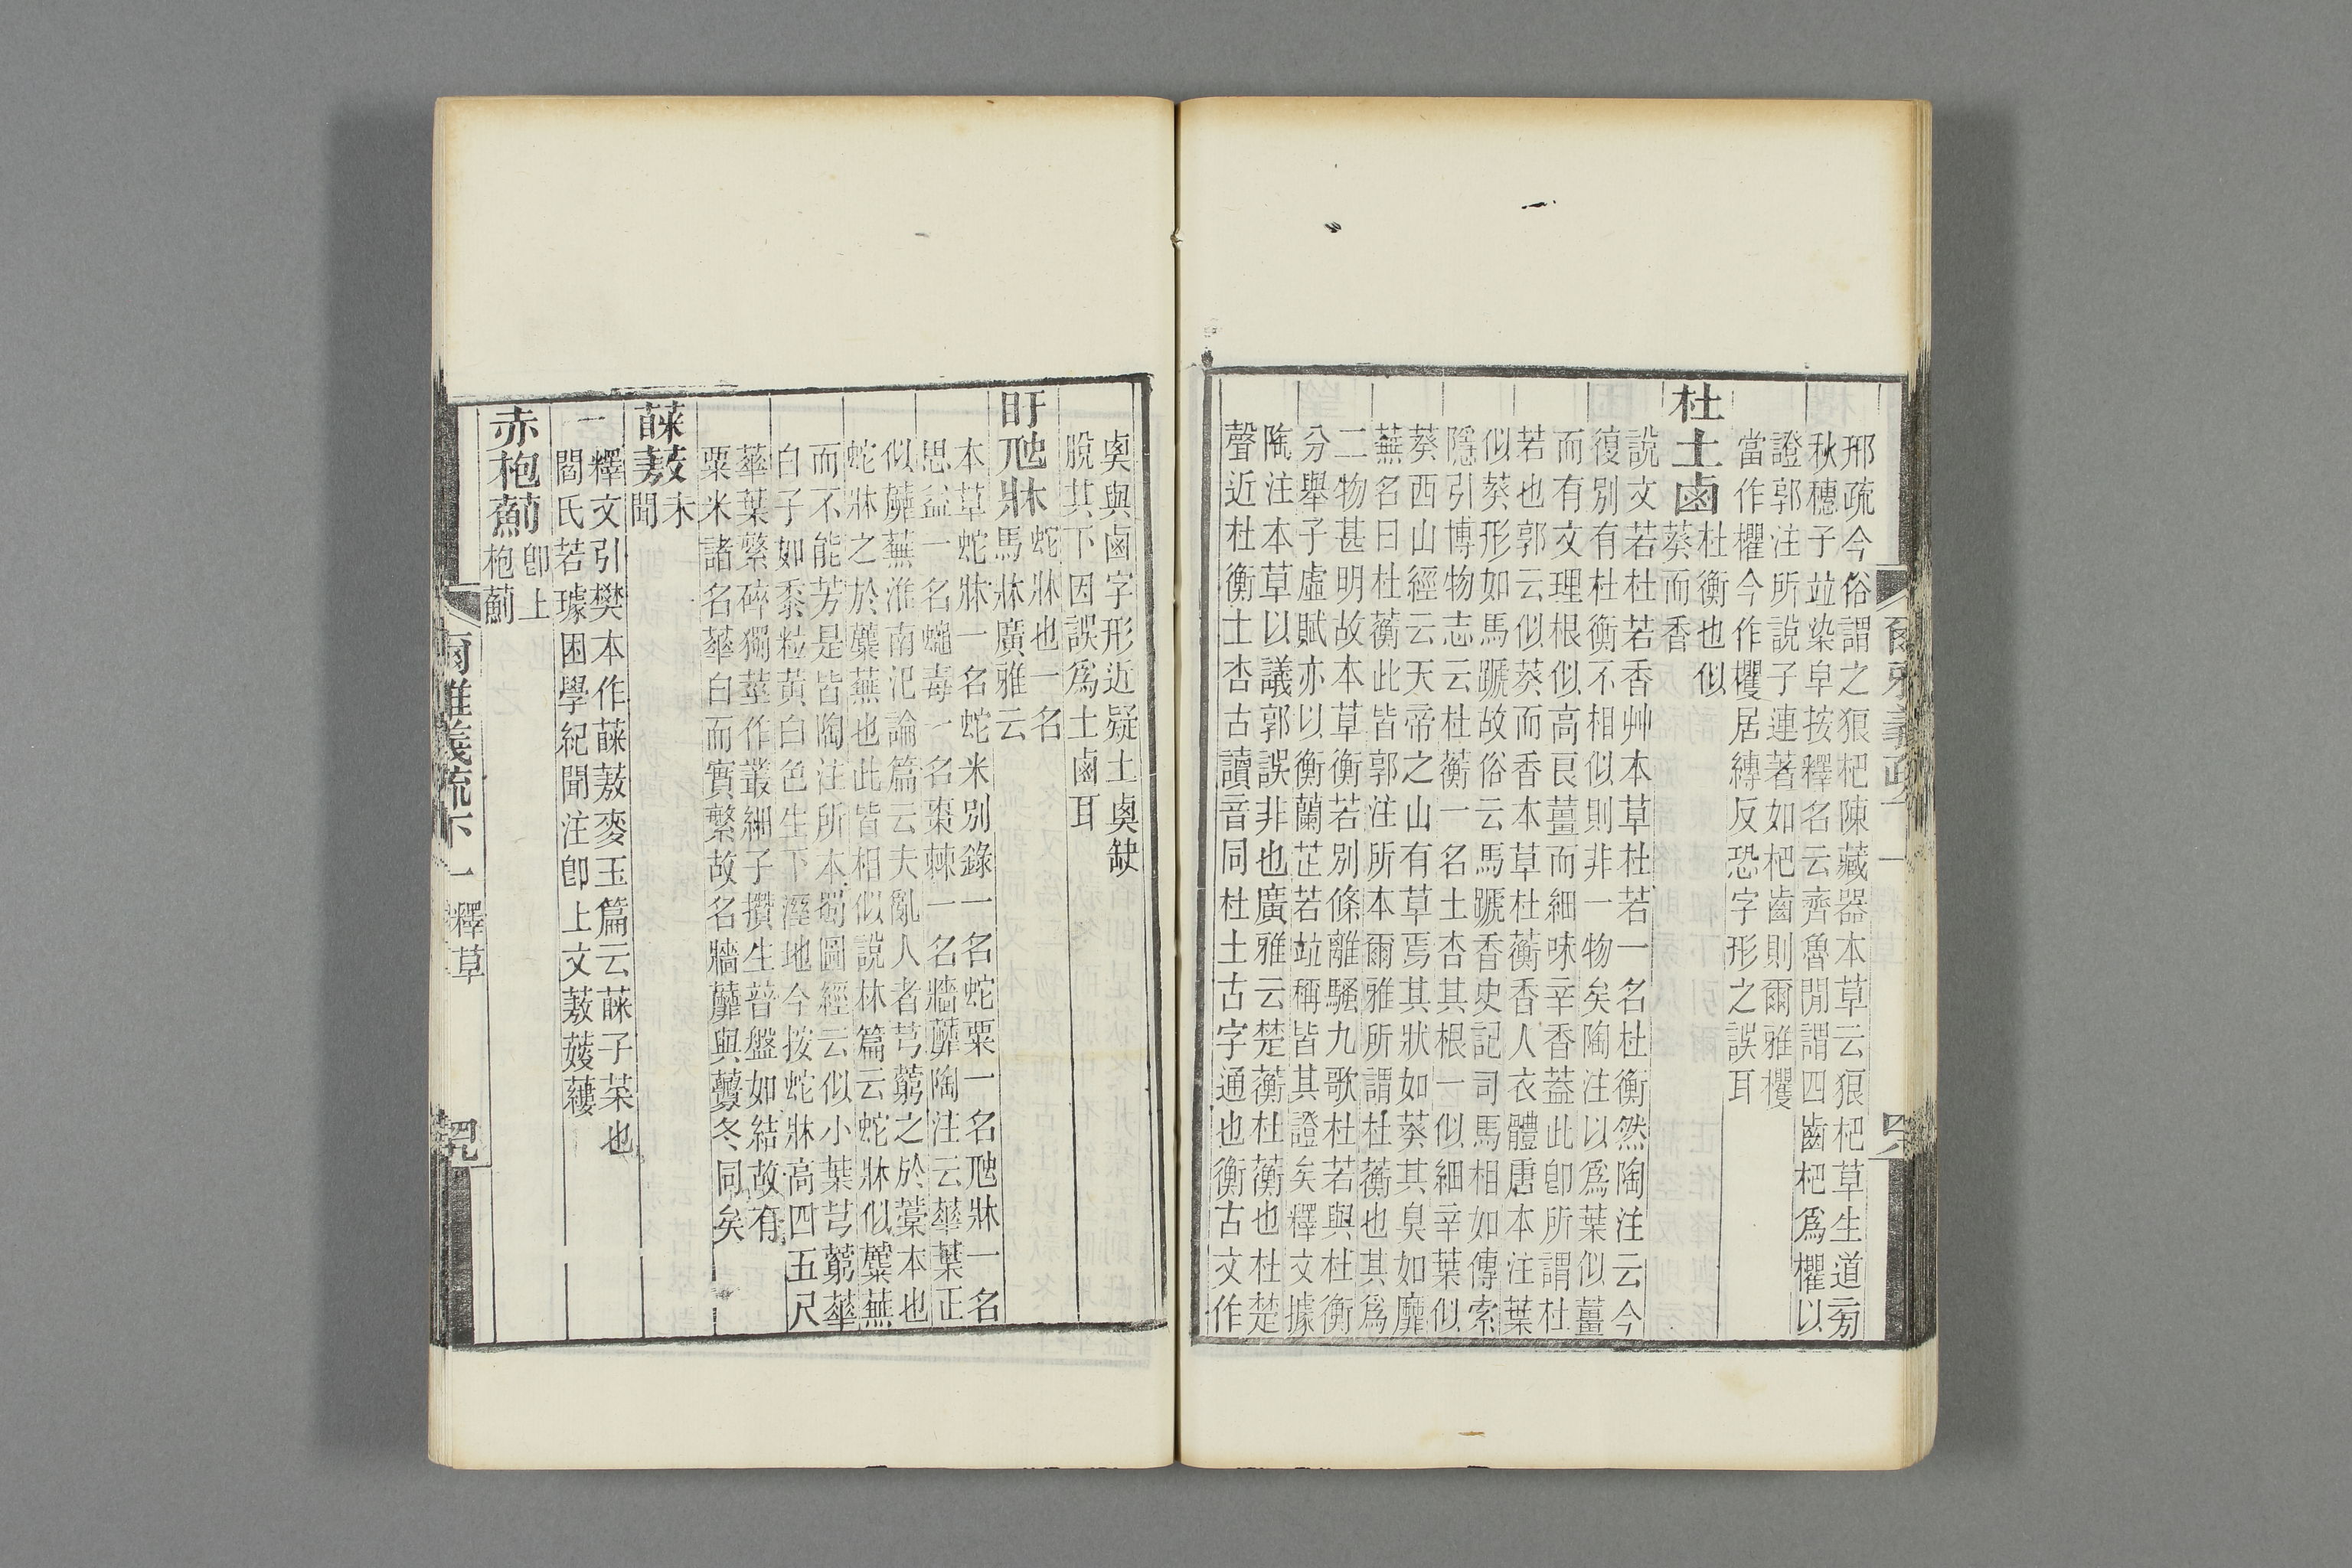 邢疏今俗謂之狼杷陳藏器本草云狼杷草生道㫄
秋穗子竝染皁按釋名云齊魯閒謂四齒杷爲欋以
證郭注所說子連著如杷齒則爾雅欋
當作欋今作欔居縳反恐字形之誤耳
杜土鹵
杜衡也似
葵而香
說文若杜若香艸本草杜若一名杜衡然陶注云今
復別有杜衡不相似則非一物矣陶注以爲葉似薑
而有文理根似高良薑而細味辛香葢此卽所謂杜
若也郭云似葵而香本草杜蘅香人衣體唐本注葉
似葵形如馬蹏故俗云馬蹏香史記司馬相如傳索
隱引博物志云杜蘅一名土杏其根一似細辛葉似
葵西山經云天帝之山有草焉其狀如葵其臭如蘼
蕪名曰杜蘅此皆郭注所本爾雅所謂杜蘅也其爲
二物甚明故本草衡若別條離騷九歌杜若與杜衡
分舉子虛賦亦以衡蘭芷若竝稱皆其證矣釋文據
陶注本草以議郭誤非也廣雅云楚蘅杜蘅也杜楚
聲近杜衡土杏古讀音同杜土古字通也衡古文作
奐與鹵字形近疑土奐缺
脫其下因誤爲土鹵耳
盱虺牀
蛇牀也一名
馬牀廣雅云
本草蛇牀一名蛇米別錄一名蛇粟一名虺牀一名
思益一名繩毒一名棗棘一名牆蘼陶注云華葉正
似蘼蕪淮南氾論篇云夫亂人者芎藭之於藁本也
蛇牀之於蘪蕪也此皆相似說林篇云蛇牀似蘪蕪
而不能芳是皆陶注所本蜀圖經云似小葉芎藭華
白子如黍粒黃白色生下溼地今按蛇牀高四五尺
華葉繁碎獨莖作叢細子攢生菩盤如結故有
粟米諸名華白而實繁故名牆蘼與虋冬同矣
蕀蔜
未
聞
釋文引樊本作蕀蔜麥玉篇云蕀子茱也
閻氏若璩困學紀聞注卽上文蔜𦽏蔞
一
赤枹薊
卽上
枹薊
爾雅義疏下一 釋草